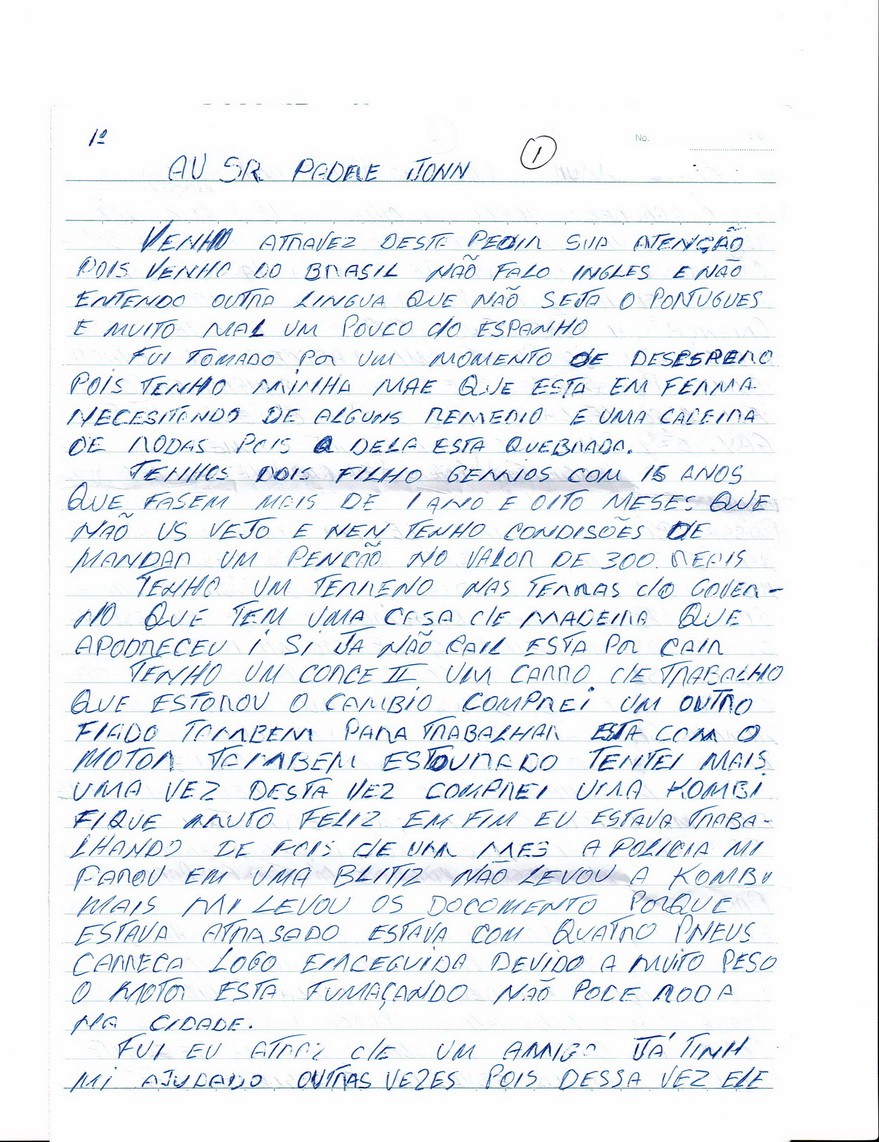 1º
No.
1
AU SR. PADRE JONN
VENHO ATRAVEZ DESTE PEDIR SUA ATENÇÃO
POIS VENHO DO BRASIL NÃO FALO INGLES E NÃO
ENTENDO OUTRA LINGUA QUE NÃO SEJA O PORTUGUES
E MUITO MAL UM POUCO dO ESPANHO
FUI TOMADO POR UM MOMENTO DE DESESPERO
POIS TENHO MINHA MAE QUE ESTA EM FERMA
NECESITANDO DE ALGUNS REMEDIO E UMA CADEIRA
DE RODAS POIS A DELA ESTA QUEBRADA.
TENHOS DOIS FILHO GEMIOS COM 15 ANOS
QUE FASEM MAIS DE 1 ANO E OITO MESES QUE
NÃO US VEJO E NEN TENHO CONDISÕES DE
MANDAR UM PENCÃO NO VALOR DE 300. REAIS
TENHO UM TERRENO NAS TERRAS dO GOVER-
NO QUE TEM UMA CASA dE MADEIRA QUE
APODRECEU I SI JA NÃO CAIL ESTA POR CAIR
TENHO UM CORCE II UM CARRO dE TRABALHO
QUE ESTOROU O CAMBIO COMPREI UM OUTRO
FIADO TAMBEM PARA TRABALHAR ESTA COM O
MOTOR TAMBEM ESTOURADO TENTEI MAIS
UMA VEZ DESTA VEZ COMPREI UMA KOMBI
FIQUE MUTO FELIZ EM FIM EU ESTAVA TRABA-
LHANDO DE POIS dE UM MES A POLICIA MI
PAROU EM UMA BLITIZ NÃO LEVOU A KOMBI
MAIS MI LEVOU OS DOCOMENTO PORQUE
ESTAVA ATRASADO ESTAVA COM QUATRO PNEUS
CARRECA LOGO EMCEGUIDA DEVIDO A MUITO PESO
O MOTOR ESTA FUMAÇANDO NÃO PODE RODA
NA CIDADE.
FUI EU ATRAZ dE UM AMIGO JÁ TINH
MI AJUDADO OUTRAS VEZES POIS DESSA VEZ ELE